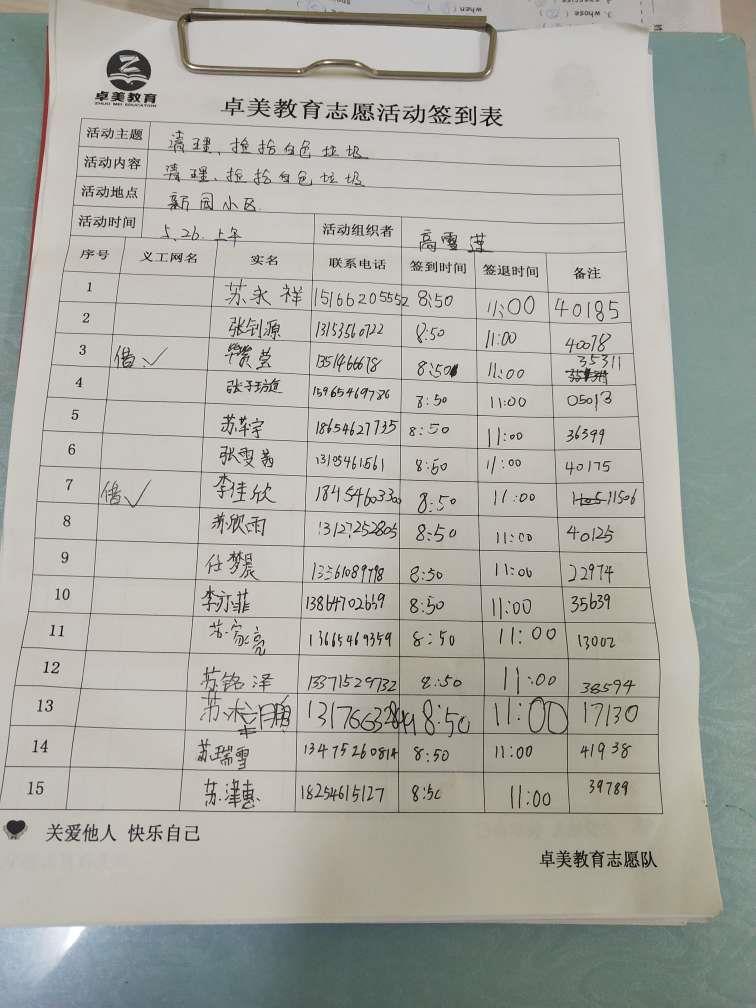 3. whose
when
卓美教育
ZHUO MEI EDUCATION
卓美教育志愿活动签到表
活动主题 清理、捡拾白色垃圾
活动内容 清理、捡拾白色垃圾
活动地点 新园小区
活动时间 5.26.上午 活动组织者 高雪莲
序号 义工网名 实名 联系电话 签到时间 签退时间 备注
1 苏永祥 15166205552 8:50 11:00 40185
2 张钊源 13153560722 8:50 11:00 40078
3 借✓ 1351466678 8:50 11:00 35311
4 15965469786 8:50 11:00 05013
5 18654627735 8:50 11:00 36399
6 张雯茜 13105461561 8:50 11:00 40175
7 借✓ 李佳欣 18454603300 8:50 11:00 11506
8 苏欣雨 13127252805 8:50 11:00 40125
9 任梦晨 13561089798 8:50 11:00 22974
10 李亦菲 13864702669 8:50 11:00 35639
11 苏家亮 13665469359 8:50 11:00 13002
12 苏铭泽 13371529732 8:50 11:00 38594
13 8:50 11:00 17130
14 苏瑞雪 13475260814 8:50 11:00 41938
15 苏泽惠 18254615127 8:50 11:00 39789
关爱他人 快乐自己
卓美教育志愿队